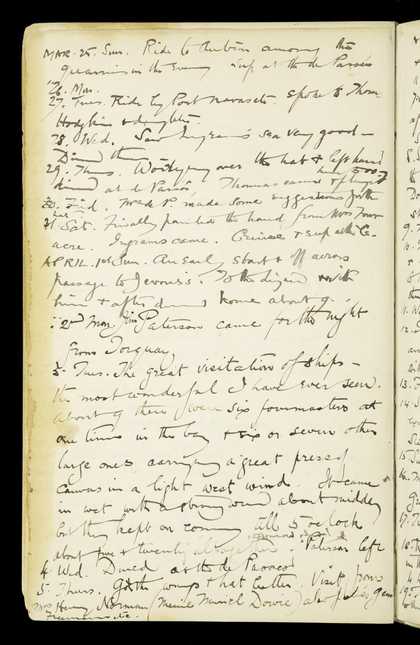 MAR. 25. Sun. Ride to the bins among the
quarries in the evening Sup at the de Passés
26. Mon.
27. Tues. Ride by Port Navas etc. spoke to Thom
Hodgkin & daughter.
28. Wed. Saw Ingram's sea very good -
Dined there
29. Thurs. Worrying over the hat & left hand
dined at de Passés. Thomas came & bought
30. Frid. Mr de P. made some suggestions for the
hat
31 Sat. Finally painted the hand from Mrs Four
acre. Ingrams came. Cruise & sup with C.
APRIL. 1st Sun. An early start & off across
passage to Jevons's. To the and with
him & after dinner home about 9.
2nd Mon. Jim Paterson came for the night
from Torquay
3. Tues. The great visitation of ships -
the most wonderful I have ever seen.
About 9 there were six fourmasters at
one time in the bay & six or seven other
large ones carrying a great press of
canvas in a light west wind. It came
in wet with a strong wind about midday
but they kept on coming till 5 oclock
about five & twenty Paterson left
4 Wed. Dined at the de Passés
5. Thurs. Got the wings & hat better. Visit from
Mrs Henry Norman (Menie Muriel Dowie) also